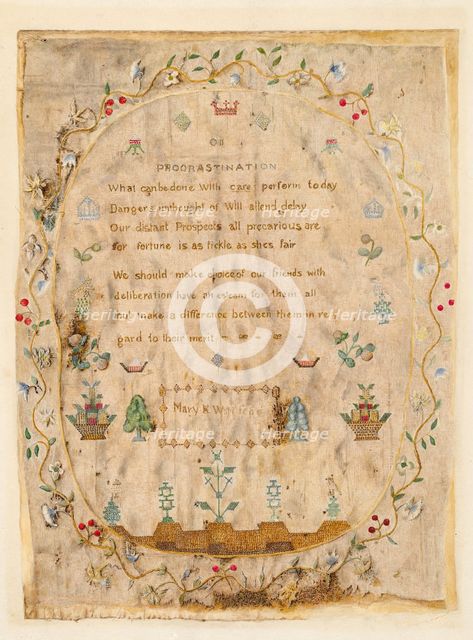 On
PROCRASTINATION
What canbe done With care perform to day
Dangers unthought of Will attend delay
Our distant Prospects all precarious are
for fortune is as fickle as shes fair
We should make choice of our friends with
deliberation have an esteam for them all
but make a difference between them in re
gard to their merit
Mary K
Heritage
Heritage
Heritage
Heritage
Heritage
Heritage
Heritage
Heritage
©